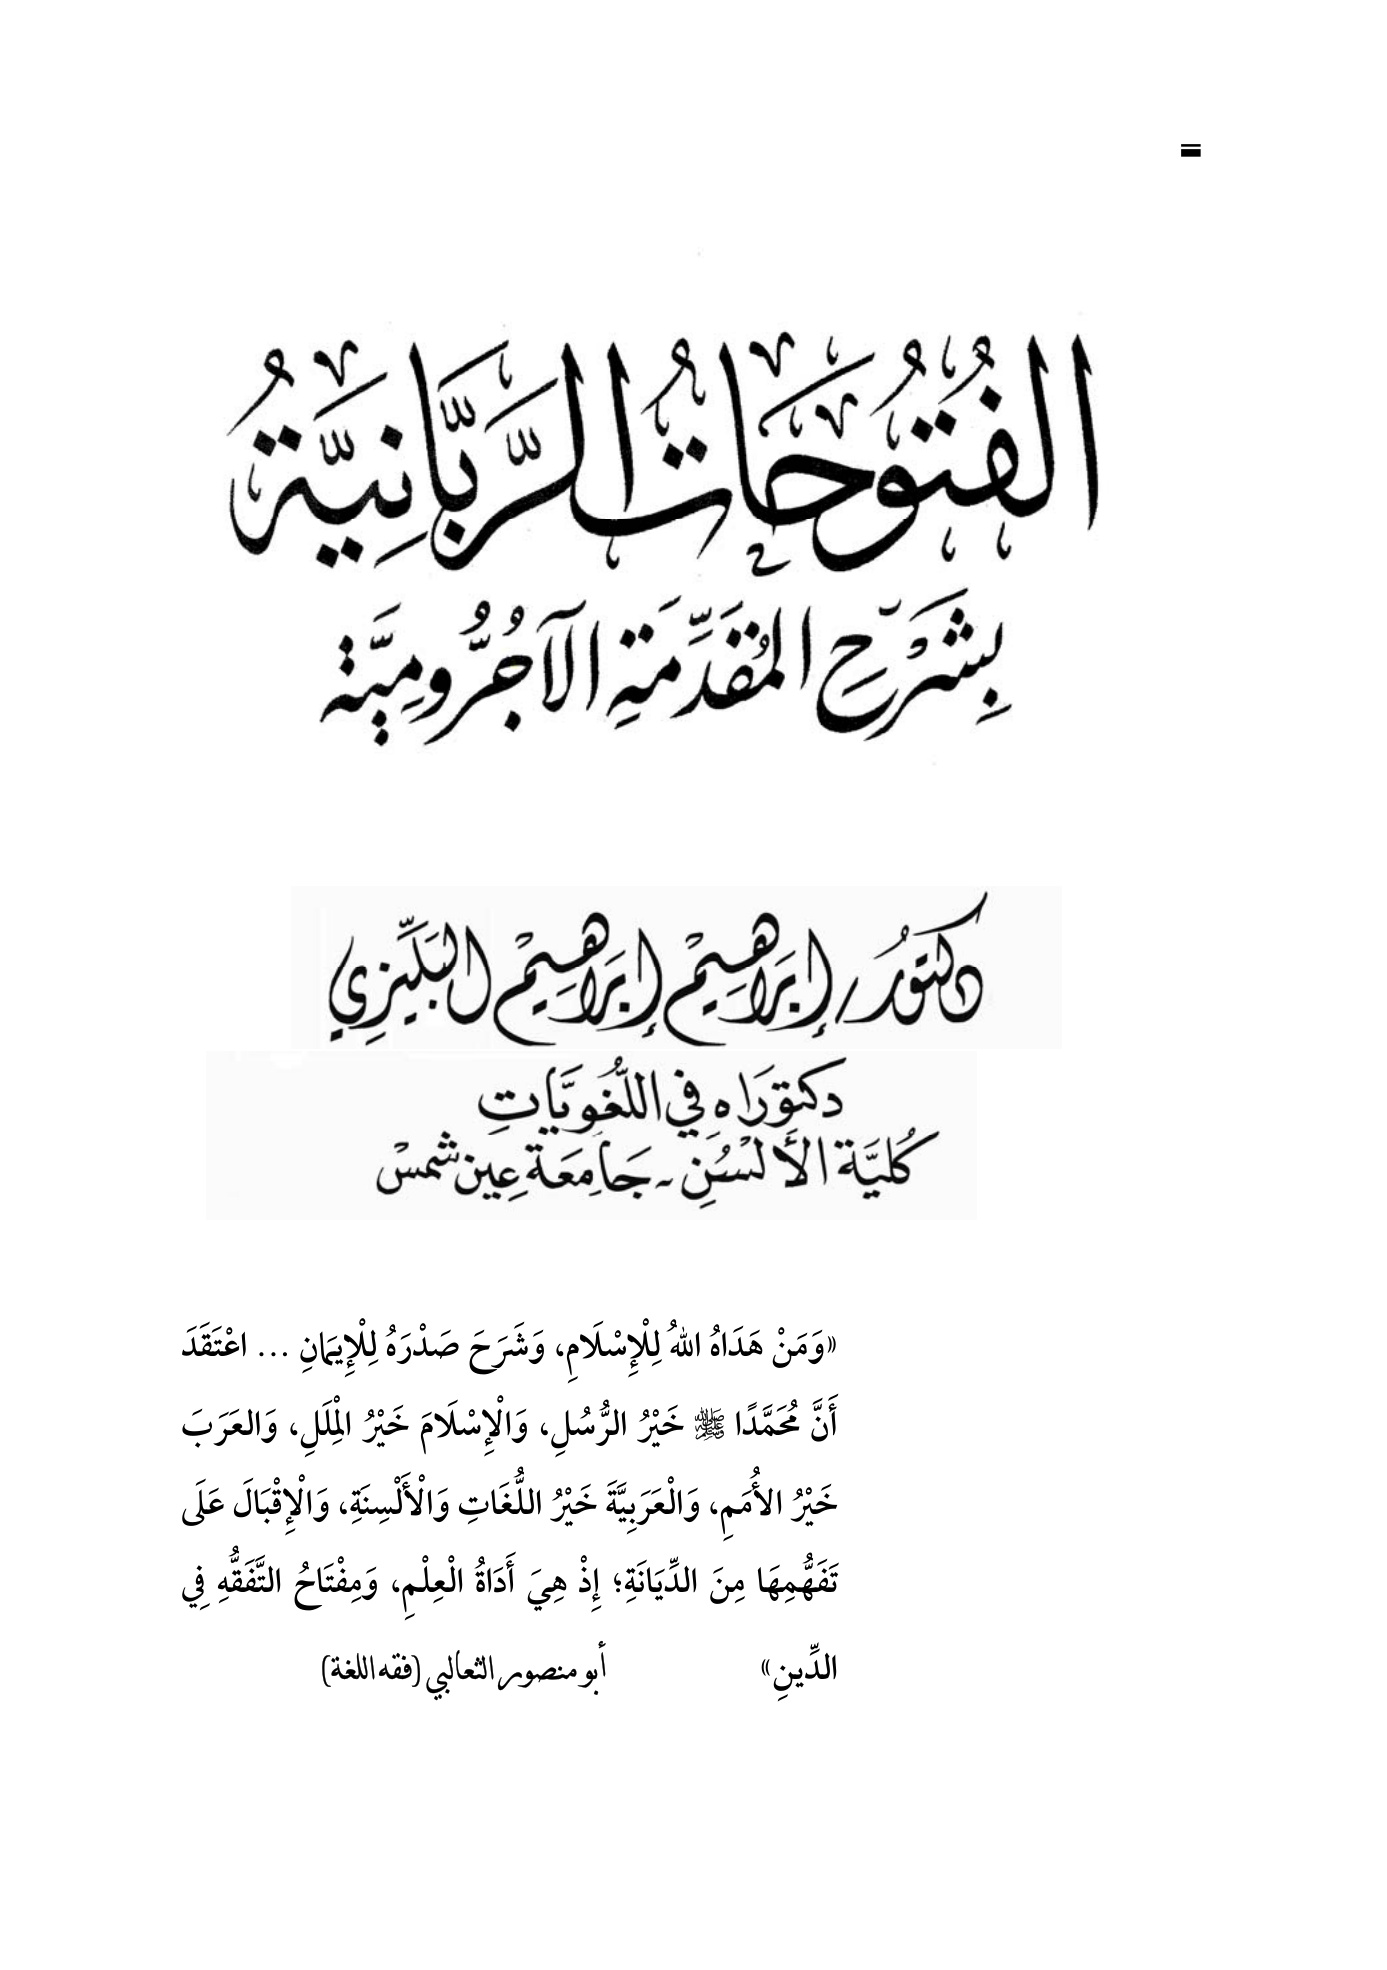 الفُتُوحَاتُ الرَّبَّانِيَّةُ
بِشَرْحِ المُقَدِّمَةِ الآجُرُّومِيَّة
دكتُور / إبرَاهِيم إبرَاهِيم البَلِّيزِي
دكتورَاه فِي اللُّغَوِيَّاتِ
كُليَّة الأَلْسُنِ - جَامِعَة عِين شمسْ
«وَمَنْ هَدَاهُ اللهُ لِلْإِسْلَامِ، وَشَرَحَ صَدْرَهُ لِلْإِيمَانِ ... اعْتَقَدَ
أَنَّ مُحَمَّدًا ﷺ خَيْرُ الرُّسُلِ، وَالْإِسْلَامَ خَيْرُ الْمِلَلِ، وَالعَرَبَ
خَيْرُ الأُمَمِ، وَالْعَرَبِيَّةَ خَيْرُ اللُّغَاتِ وَالْأَلْسِنَةِ، وَالْإِقْبَالَ عَلَى
تَفَهُّمِهَا مِنَ الدِّيَانَةِ؛ إِذْ هِيَ أَدَاةُ الْعِلْمِ، وَمِفْتَاحُ التَّفَقُّهِ فِي
الدِّينِ» أبو منصور الثعالبي (فقه اللغة)